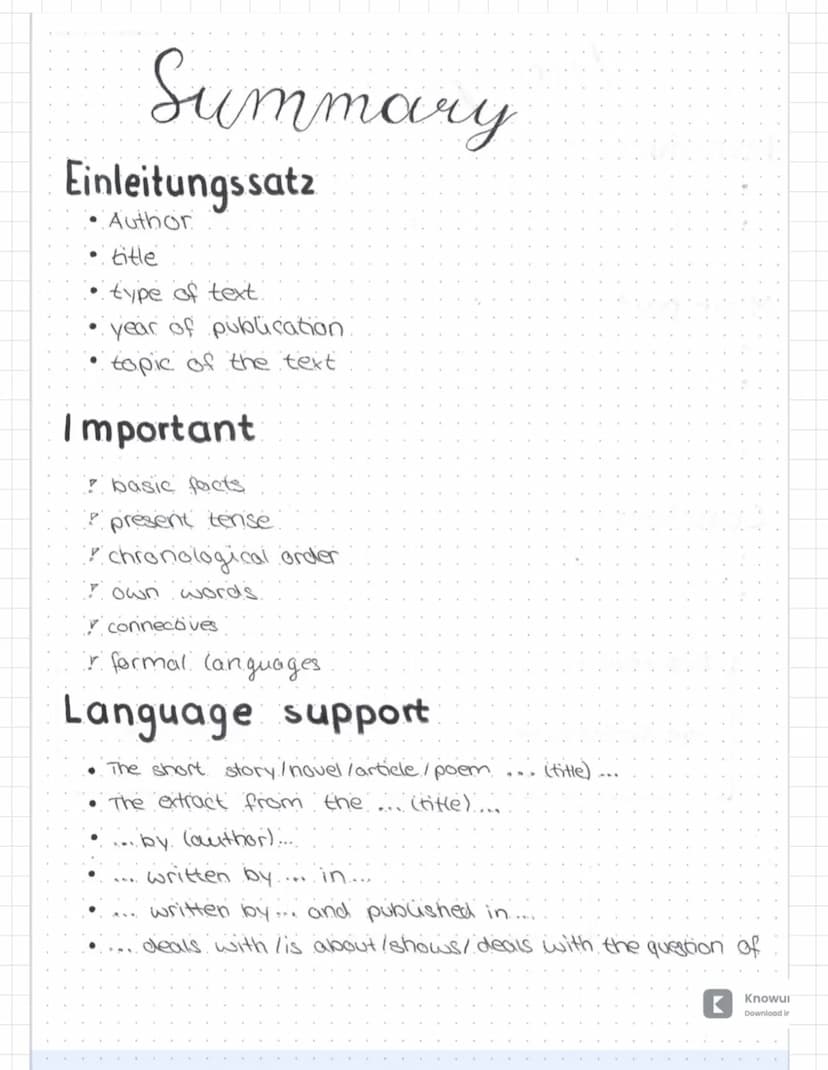 Summary
Einleitungssatz
• Author
• title
• type of text
• year of publication
• topic of the text
Important
! basic facts
! present tense
! chronological order
! own words
! connectives
! formal languages
Language support
• The short story/novel/article/poem ... (title) ...
• The extract from the ... (title) ...
• ... by (author)...
• ... written by ... in ...
• ... written by ... and published in ...
• ... deals with/is about/shows/deals with the question of
Download